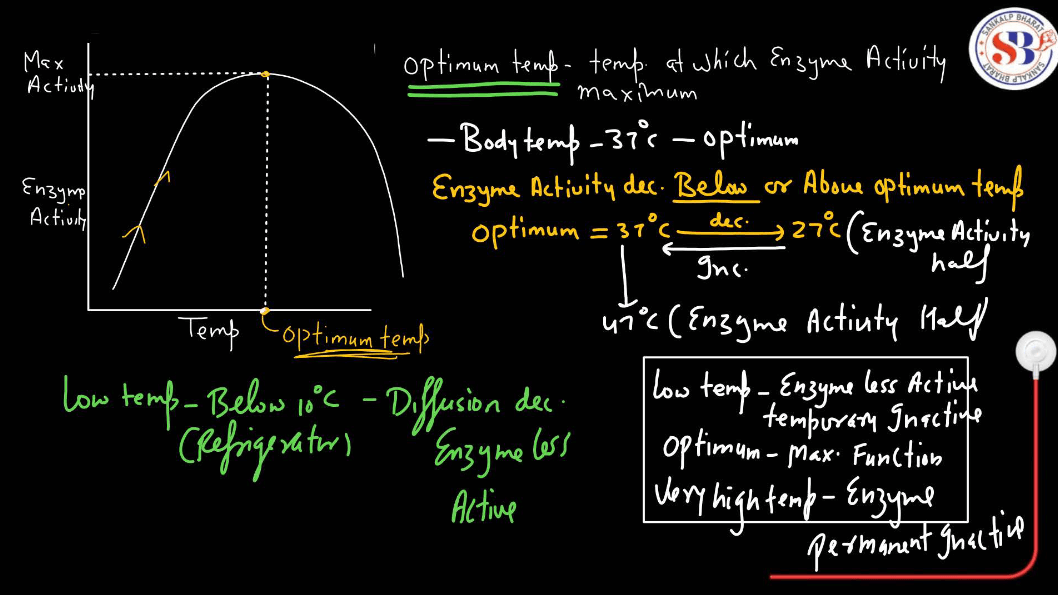 Max
Activity
Enzyme
Activity
Temp
optimum temp
optimum temp - temp. at which Enzyme Activity
maximum
SANKALP BHARAT
SB
SANKALP BHARAT
- Body temp - 37°C - optimum
Enzyme Activity dec. Below or Above optimum temp
optimum = 37°C dec. 27°C (Enzyme Activity
half
Inc.
47°C (Enzyme Activity Half
Low temp - Below 10°C - Diffusion dec.
(Refrigerator)
Enzyme less
Active
Low temp - Enzyme less Active
temporary Inactive
Optimum - Max. Function
Very high temp - Enzyme
permanent Inactive